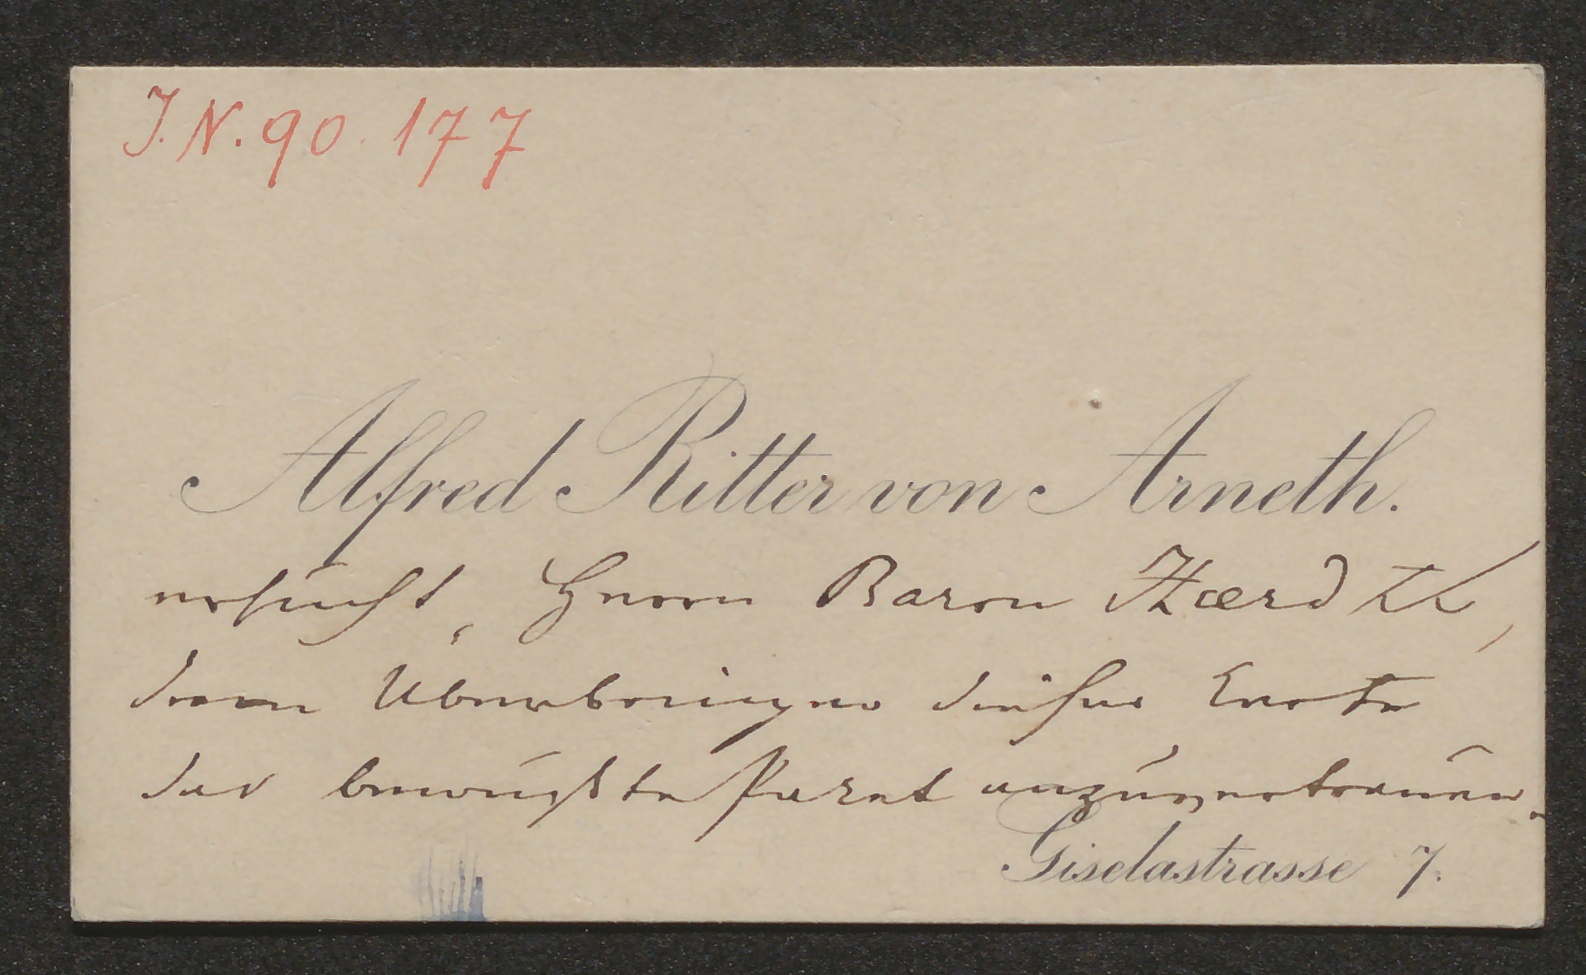 J.N. 90.177
Alfred Ritter von Arneth.
ersucht, Herrn Baron Haerdtl,
dem Überbringer dieser Karte
das bewußte Paket anzuvertrauen.
Giselastrasse 7.